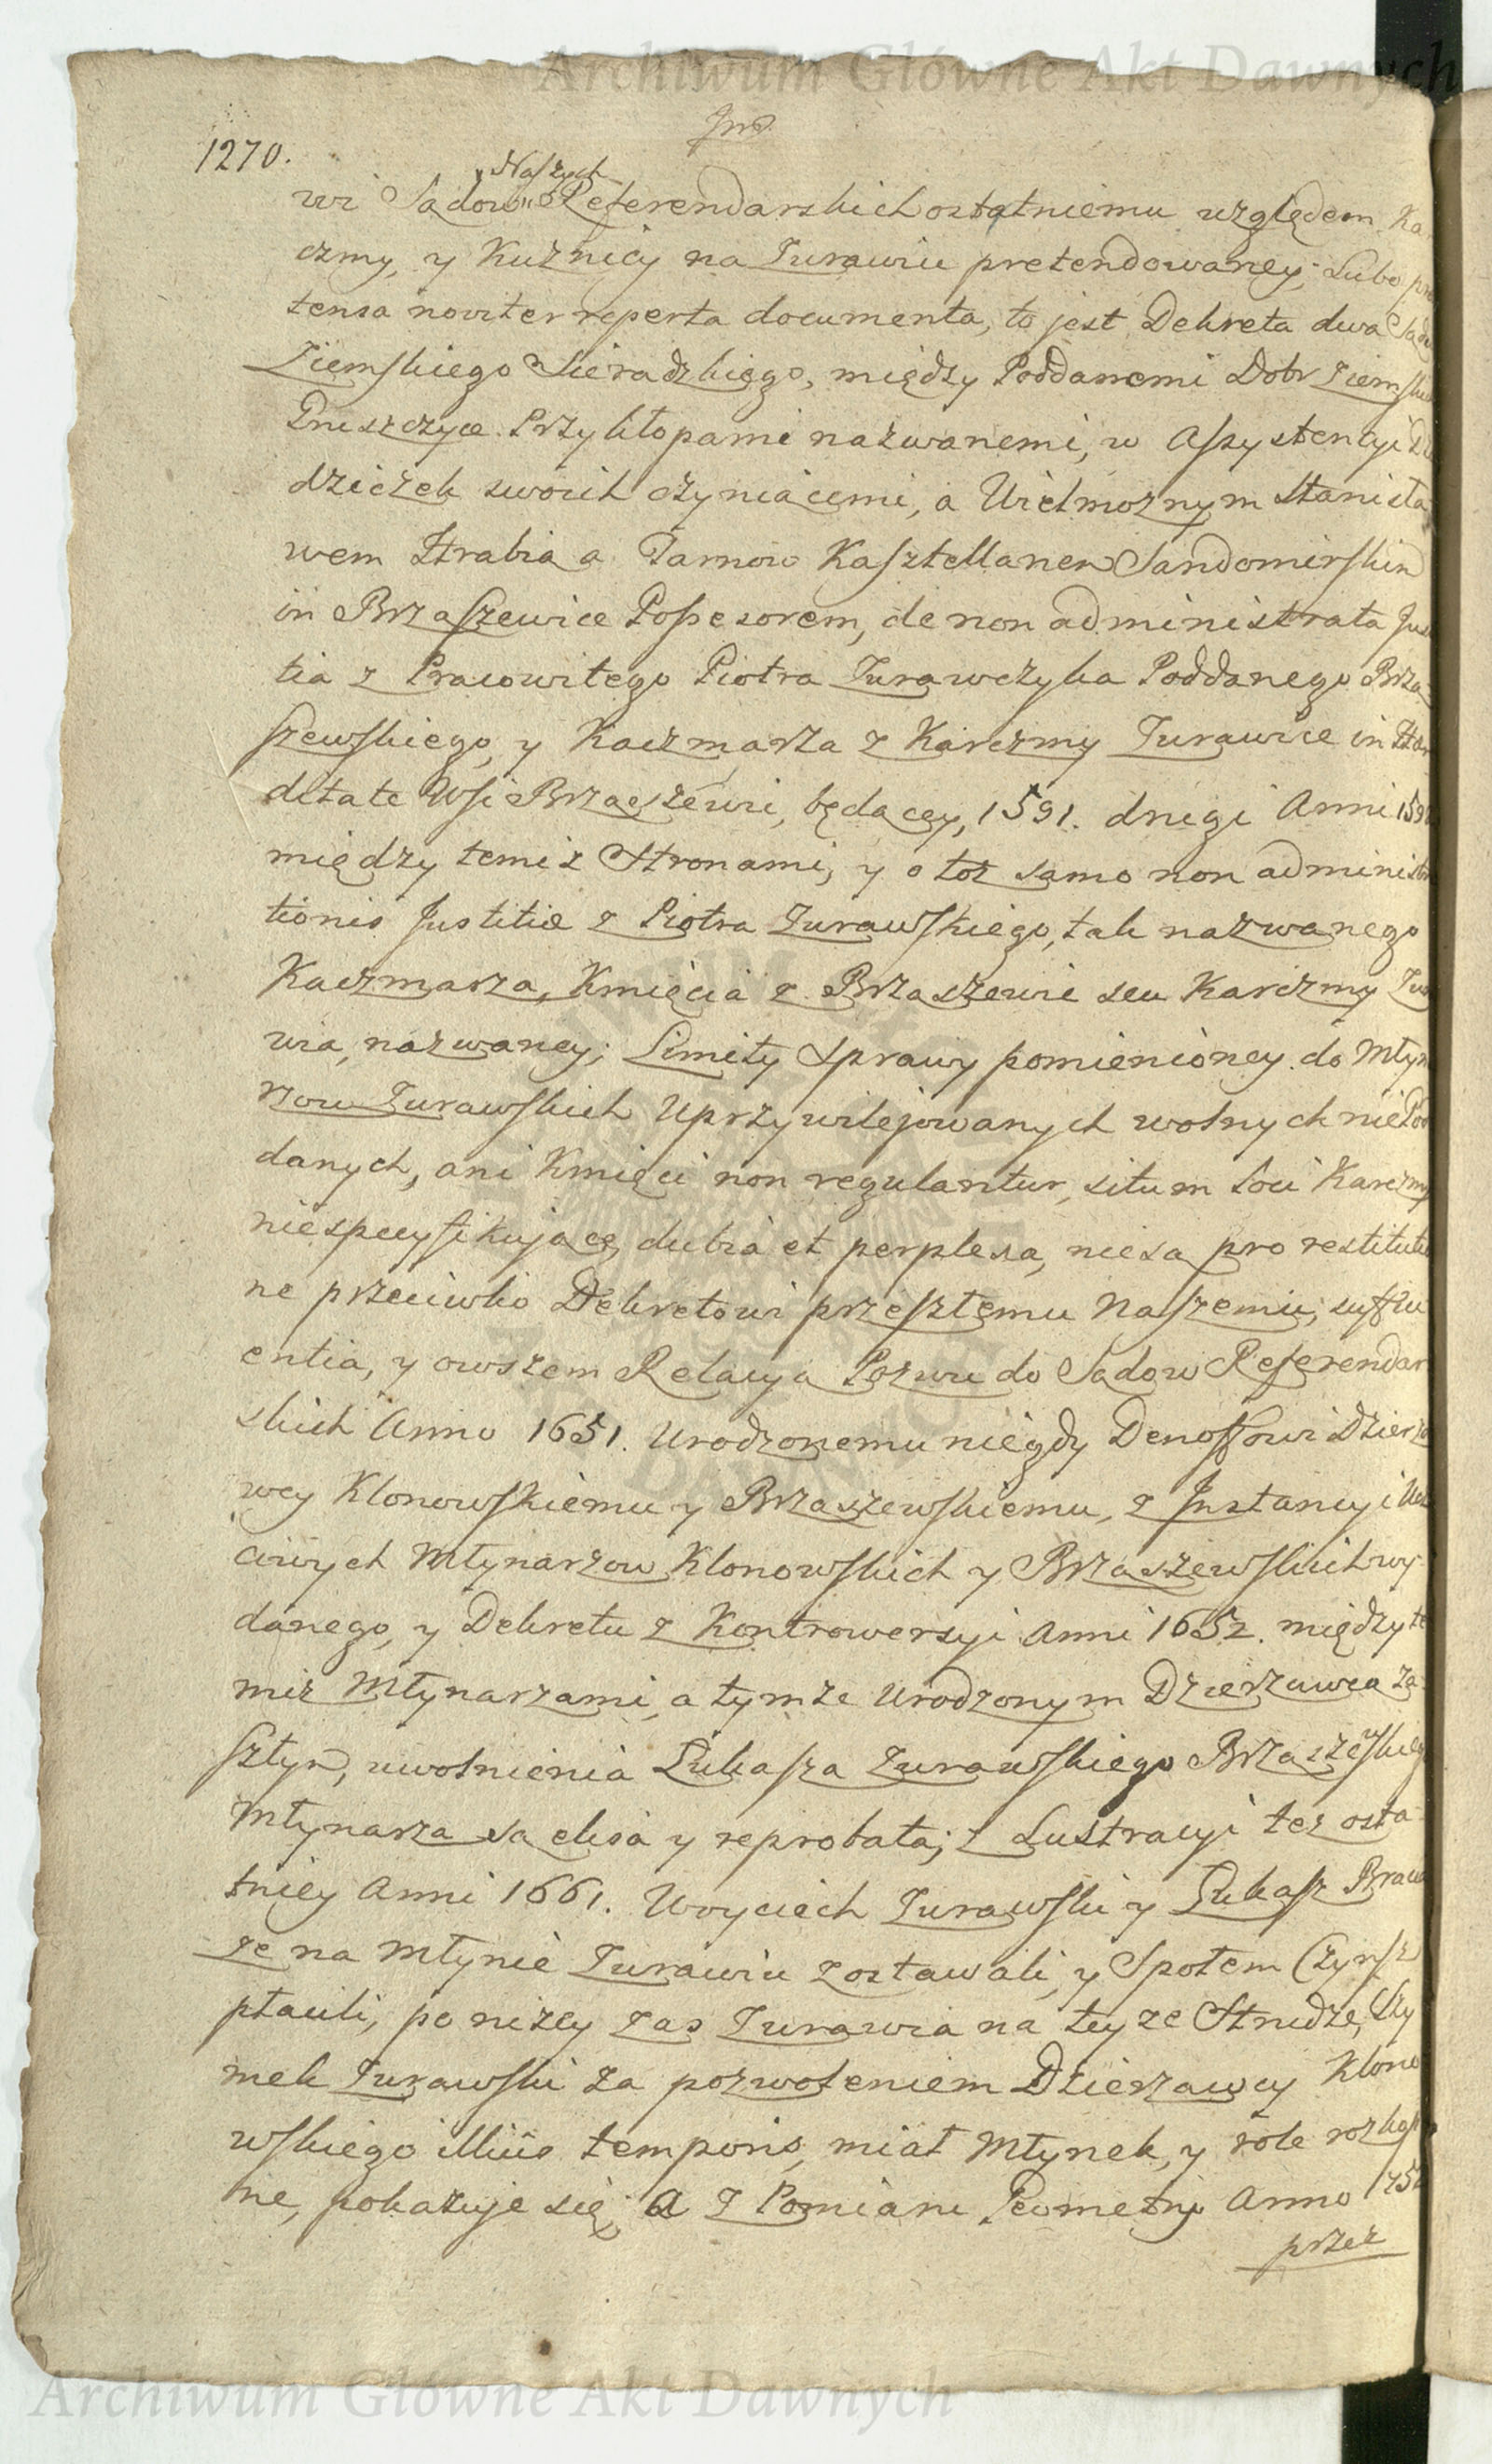 Archiwum Główne Akt Dawnych
1270.
Naszych
wi Sądow Referendarskich ostatniemu względem Ka
czmy, y Kuznicy na Zurawiu pretendowaney, Lubo pre
tensa noviter reperta documenta, to jest Dekreta dwa Sądu
Ziemskiego Sieradzkiego, między Poddanemi Dobr Ziemskich
Pruszczyce Przykłopami nazwanemi, w Assystencyi Dzie
dziczek swoich czyniącemi, a Wielmoznym Stanisła
wem Hrabią a Tarnow Kasztellanem Sandomirskim
in Brzaszewice Possesorem, de non administrata Jus
tia z Pracowitego Piotra Zurawczyka Poddanego Brza
szewskiego, y Kaczmarza z Karczmy Zurawice in Hære
ditate Wsi Brzaszewi, będącey, 1591. drugi Anni 159
między temiż Stronami, y o toż samo non administra
tionis Justitiæ z Piotra Zurawskiego, tak nazwanego
Kaczmarza, Kmięcia z Brzaszewic seu Karczmy Zura
wia, nazwaney; Limity Sprawy pomienioney do Młyna
rzow Zurawskich Uprzywilejowanych wolnych nie Pod
danych, ani Kmięci non regulantur, situm Loci Karczmy
niespecyfikujące, dubia et perplexa, nie są pro restitutio
ne przeciwko Dekretowi przeszłemu Naszemu, suffici
entia, y owszem Relacya Pozwu do Sądow Referendar
skich Anno 1651. Urodzonemu niegdy Denoffowi Dzierża
wcy Klonowskiemu y Brzaszewskiemu, z Instancyi Ucz
ciwych Młynarzow Klonowskich y Brzaszewskich wy
danego, y Dekretu z Kontrowersyi Anni 1652. między te
miz Młynarzami, a tymze Urodzonym Dzierzawcą za
szłym, uwolnienia Łukasza Zurawskiego Brzaszewskieg
Młynarza są elisa y reprobata; z Lustracyi tez osta
tniey Anni 1661. Woyciech Zurawski y Łukasz Braw
ze na Młynie Zurawiu zostawali, y Społem Czynsz
płacili, ponizey zas Zurawia na teyze Strudze, Szy
mek Zurawski za pozwoleniem Dzierzawcy Klono
wskiego illius temporis, miał Młynek, y role rozkop
ne, pokazuje się; A z Pomiaru Jeometry Anno 175
przez
Archiwum Główne Akt Dawnych